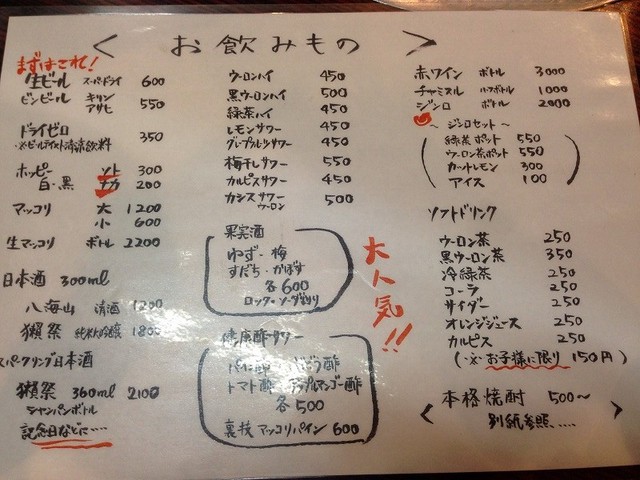 < お飲みもの >
まずはこれ!
生ビール スーパードライ 600
ビンビール キリン アサヒ 550
ドライゼロ 350
※ビールテイスト清涼飲料
ホッピー ソト 300
白・黒 ナカ 200
マッコリ 大 1200
小 600
生マッコリ ボトル 2200
日本酒 300ml
八海山 清酒 1200
獺祭 純米大吟醸 1800
スパークリング日本酒
獺祭 360ml 2100
シャンパンボトル
記念日などに....
ウーロンハイ 450
黒ウーロンハイ 500
緑茶ハイ 450
レモンサワー 450
グレープフルーツサワー 450
梅干しサワー 550
カルピスサワー 450
カシスサワー 500
ウーロン
果実酒
ゆず・梅
すだち・かぼす
各600
ロック・ソーダわり
大人気!!
健康酢サワー
ぶどう酢
トマト酢 アップルマンゴー酢
各500
裏技 マッコリパイン 600
赤ワイン ボトル 3000
チャミスル ハーフボトル 1000
ジンロ ボトル 2000
~ジンロセット~
緑茶ポット 550
ウーロン茶ポット 550
カットレモン 300
アイス 100
ソフトドリンク
ウーロン茶 250
黒ウーロン茶 350
冷緑茶 250
コーラ 250
サイダー 250
オレンジジュース 250
カルピス 250
(※お子様に限り 150円)
本格焼酎 500~
別紙参照....